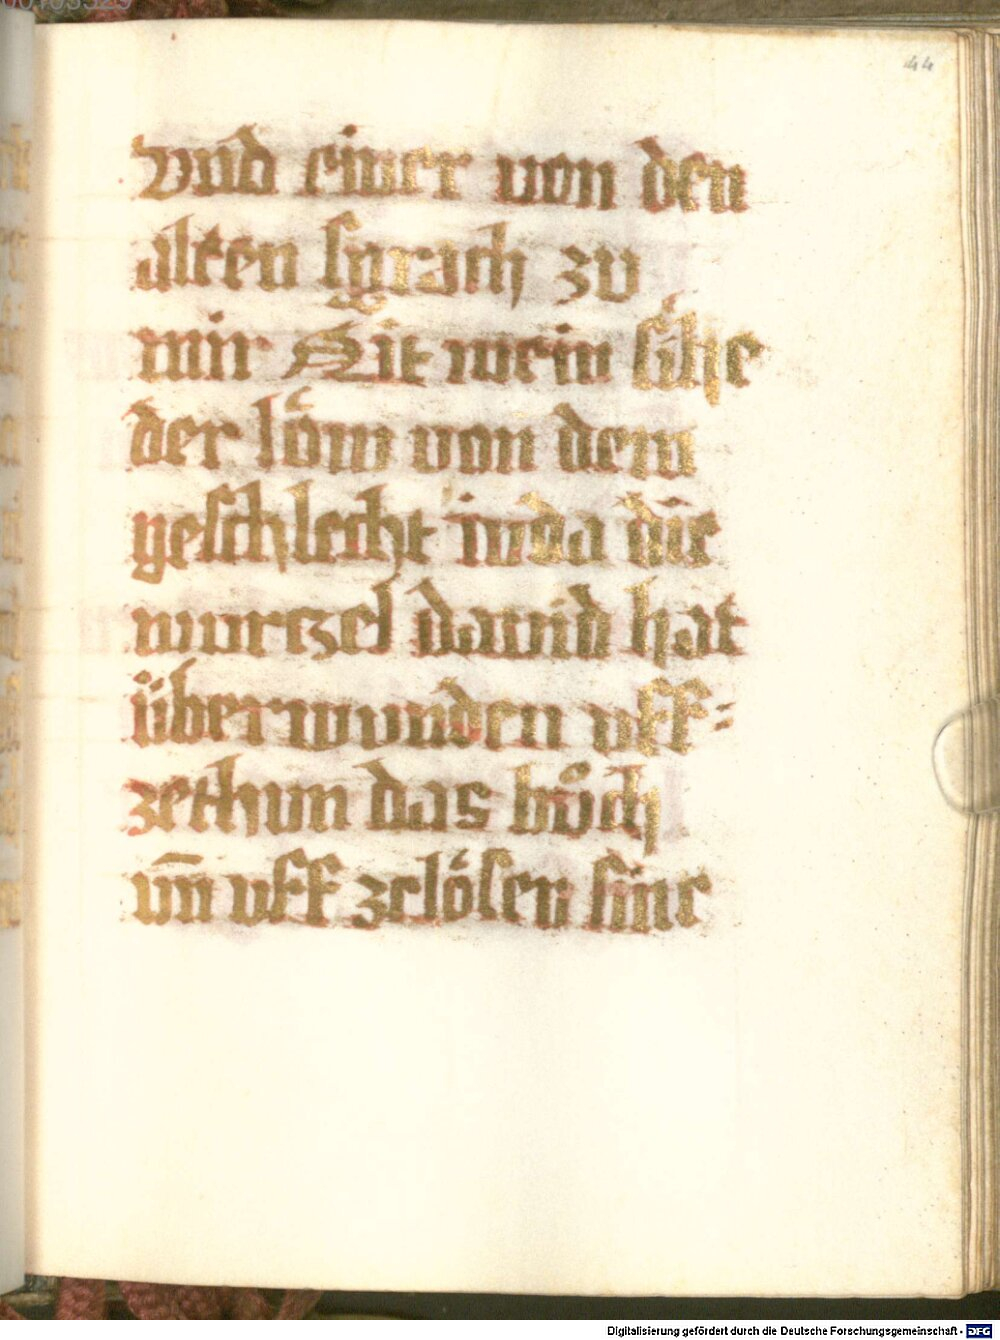 44
Vnd einer von den
alten sprach zu
mir Nit wein sihe
der löw von dem
geschlecht iuda die
wurtzel dauid hat
überwunden vff=
zethun das bůch
vn̄ vff zelösen sine
Digitalisierung gefördert durch die Deutsche Forschungsgemeinschaft - DFG